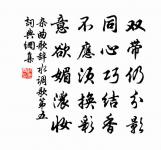 双带仍分影
同心巧结香
不应须换彩
意欲媚浓妆
杂曲歌辞水调歌第五
词典网集